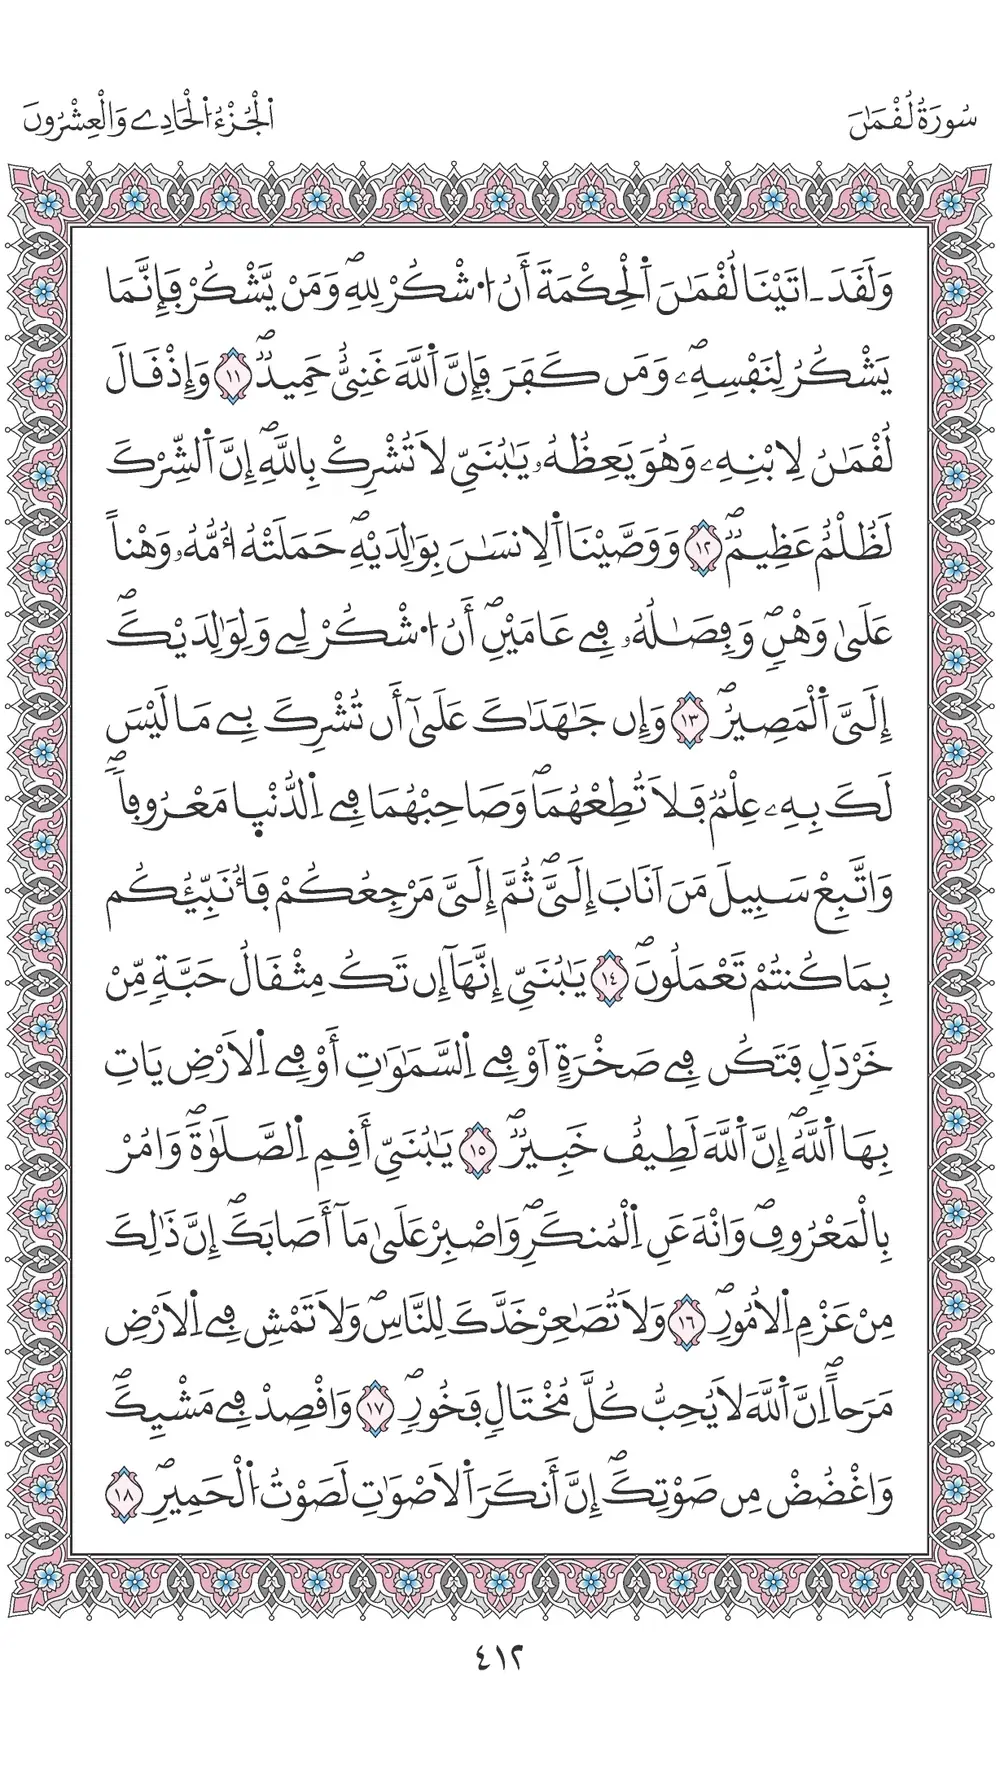 سُورَةُ لُقْمَٰنَ
اَ۬لْجُزْءُ اُ۬لْحَادِے وَالْعِشْرُونَ
وَلَقَدَ اٰتَيْنَا لُقْمَٰنَ اَ۬لْحِكْمَةَ أَنُ اُ۟شْكُرْ لِلهِۖ وَمَنْ يَّشْكُرْ فَإِنَّمَا
يَشْكُرُ لِنَفْسِهِۦۖ وَمَن كَفَرَ فَإِنَّ اَ۬للَّهَ غَنِيٌّ حَمِيدٞۖ ١١ وَإِذْ قَالَ
لُقْمَٰنُ لِابْنِهِۦ وَهُوَ يَعِظُهُۥ يَٰبُنَيِّ لَا تُشْرِكْ بِاللَّهِۖ إِنَّ اَ۬لشِّرْكَ
لَظُلْمٌ عَظِيمٞۖ ١٢ وَوَصَّيْنَا اَ۬لِانسَٰنَ بِوَٰلِدَيْهِۖ حَمَلَتْهُ أُمُّهُۥ وَهْناً
عَلَىٰ وَهْنٖۖ وَفِصَٰلُهُۥ فِے عَامَيْنِۖ أَنُ اُ۟شْكُرْ لِے وَلِوَٰلِدَيْكَۖ
إِلَيَّ اَ۬لْمَصِيرُۖ ١٣ وَإِن جَٰهَدَٰكَ عَلَىٰٓ أَن تُشْرِكَ بِے مَا لَيْسَ
لَكَ بِهِۦ عِلْمٞ فَلَا تُطِعْهُمَاۖ وَصَاحِبْهُمَا فِے اِ۬لدُّنْي۪ا مَعْرُوفاٗۖ
وَاتَّبِعْ سَبِيلَ مَنَ اَنَابَ إِلَيَّۖ ثُمَّ إِلَيَّ مَرْجِعُكُمْ فَأُنَبِّئُكُم
بِمَا كُنتُمْ تَعْمَلُونَۖ ١٤ يَٰبُنَيِّ إِنَّهَآ إِن تَكُ مِثْقَالُ حَبَّةٖ مِّنْ
خَرْدَلٖ فَتَكُن فِے صَخْرَةٍ اَوْ فِے اِ۬لسَّمَٰوَٰتِ أَوْ فِے اِ۬لَارْضِ يَاتِ
بِهَا اَ۬للَّهُۖ إِنَّ اَ۬للَّهَ لَطِيفٌ خَبِيرٞۖ ١٥ يَٰبُنَيِّ أَقِمِ اِ۬لصَّلَوٰةَۖ وَامُرْ
بِالْمَعْرُوفِۖ وَانْهَ عَنِ اِ۬لْمُنكَرِۖ وَاصْبِرْ عَلَىٰ مَآ أَصَابَكَۖ إِنَّ ذَٰلِكَ
مِنْ عَزْمِ اِ۬لُامُورِۖ ١٦ وَلَا تُصَٰعِرْ خَدَّكَ لِلنَّاسِۖ وَلَا تَمْشِ فِے اِ۬لَارْضِ
مَرَحاًۖ اِنَّ اَ۬للَّهَ لَا يُحِبُّ كُلَّ مُخْتَالٖ فَخُورٖۖ ١٧ وَاقْصِدْ فِے مَشْيِكَۖ
وَاغْضُضْ مِن صَوْتِكَۖ إِنَّ أَنكَرَ اَ۬لَاصْوَٰتِ لَصَوْتُ اُ۬لْحَمِيرِۖ ١٨
٤١٢